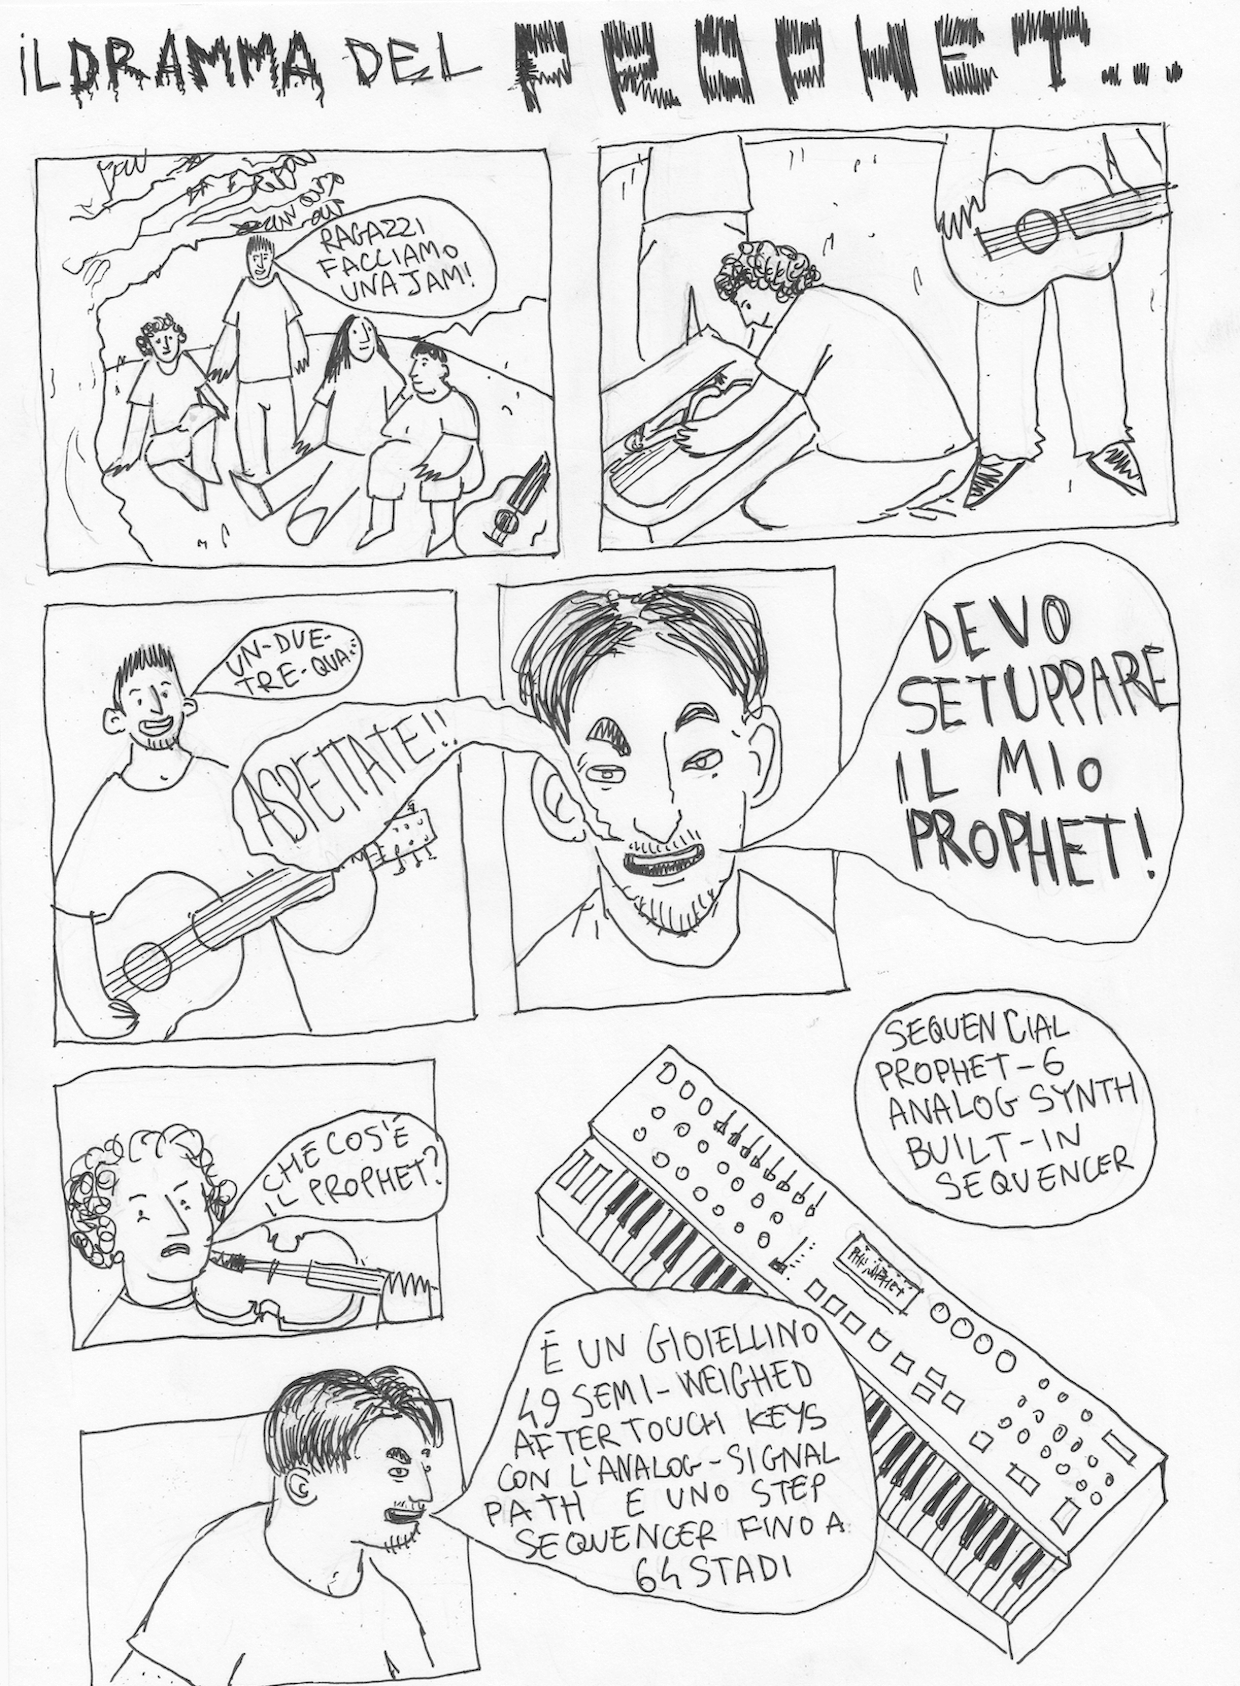 iL DRAMMA DEL PROPHET...
RAGAZZI
FACCIAMO
UNA JAM!
UN-DUE-
TRE-QUA...
ASPETTATE!!
DEVO
SETUPPARE
IL MIO
PROPHET!
SEQUENCIAL
PROPHET-6
ANALOG SYNTH
BUILT-IN
SEQUENCER
CHE COS'È
IL PROPHET?
È UN GIOIELLINO
49 SEMI-WEIGHED
AFTERTOUCH KEYS
CON L'ANALOG-SIGNAL
PATH E UNO STEP
SEQUENCER FINO A
64 STADI